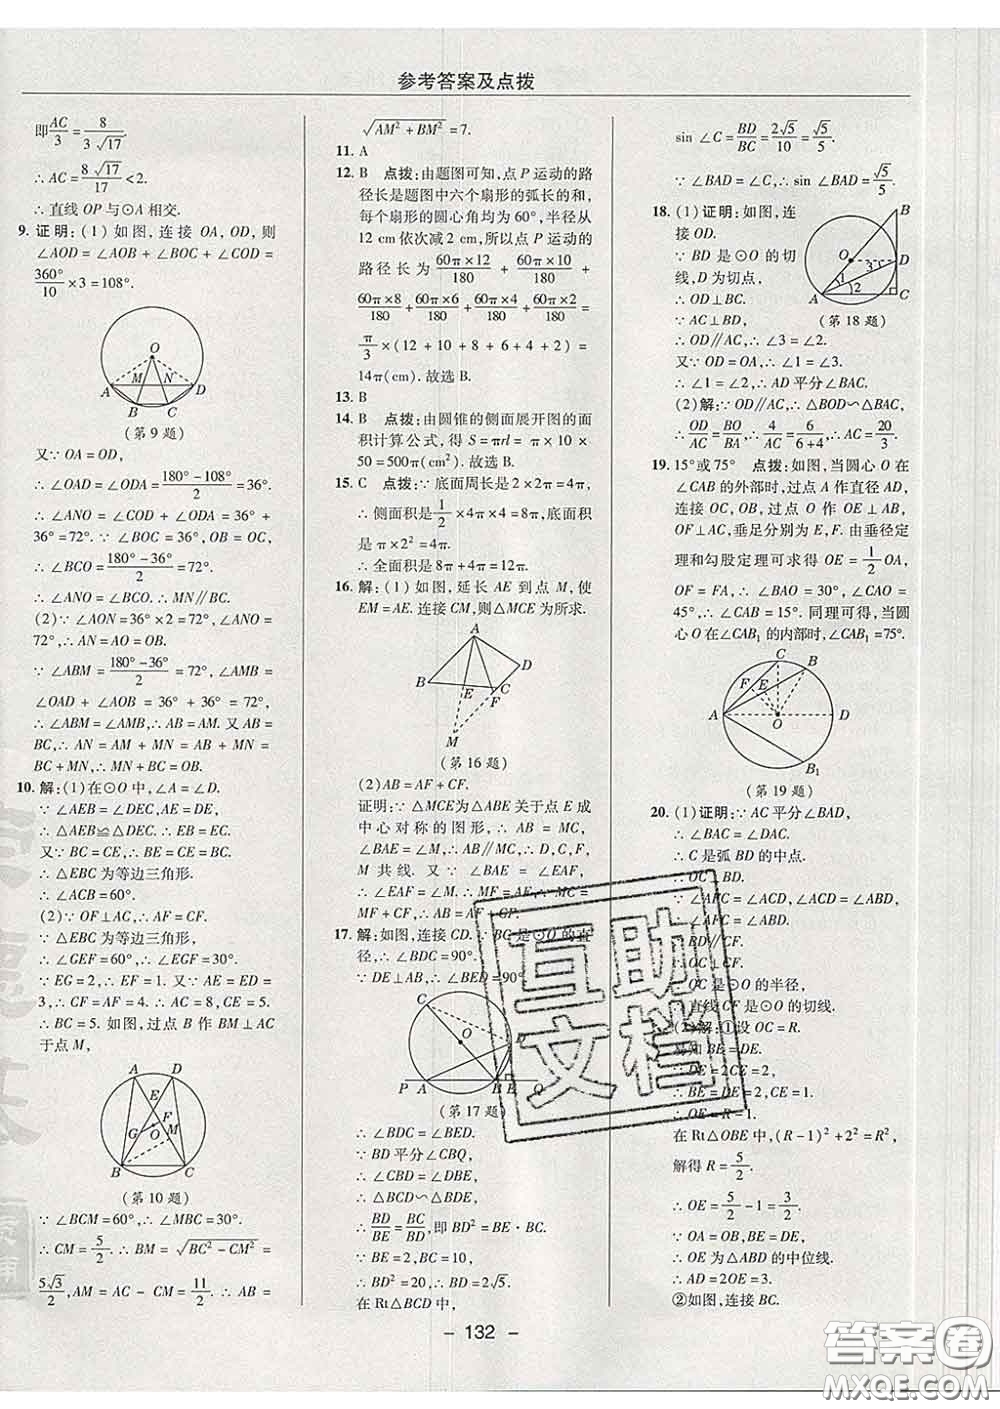 参考答案及点拨
即AC/3=8/(3√17).
∴AC=8√17/17<2.
∴直线 OP 与⊙A 相交.
9. 证明:(1)如图,连接 OA,OD,则
∠AOD=∠AOB+∠BOC+∠COD=
360°/10×3=108°.
O
M
N
A
D
B
C
(第9题)
又∵OA=OD,
∴∠OAD=∠ODA=(180°-108°)/2=36°.
∴∠ANO=∠COD+∠ODA=36°+
36°=72°.∵∠BOC=36°,OB=OC,
∴∠BCO=(180°-36°)/2=72°.
∴∠ANO=∠BCO.∴MN∥BC.
(2)∵∠AON=36°×2=72°,∠ANO=
72°,∴AN=AO=OB.
∵∠ABM=(180°-36°)/2=72°,∠AMB=
∠OAD+∠AOB=36°+36°=72°,
∴∠ABM=∠AMB,∴AB=AM.又AB=
BC,∴AN=AM+MN=AB+MN=
BC+MN.
10. 解:(1)在⊙O 中,∠A=∠D.
∵∠AEB=∠DEC,AE=DE,
∴△AEB≌△DEC.∴EB=EC.
又∵BC=CE,∴BE=CE=BC.
∴△EBC 为等边三角形.
∴∠ACB=60°.
(2)∵OF⊥AC,∴AF=CF.
∵△EBC 为等边三角形,
∴∠GEF=60°.∴∠EGF=30°.
∵EG=2,∴EF=1.又∵AE=ED=
3,∴CF=AF=4.∴AC=8,CE=5.
∴BC=5.如图,过点 B 作 BM⊥AC
于点 M,
A
D
E
F
G
O
M
B
C
(第10题)
∵∠BCM=60°,∴∠MBC=30°.
∴CM=5/2.∴BM=√(BC²-CM²)=
5√3/2,AM=AC-CM=11/2.∴AB=
√(AM²+BM²)=7.
11. A
12. B 点拨:由题图可知,点 P 运动的路
径长是题图中六个扇形的弧长的和,
每个扇形的圆心角均为60°,半径从
12 cm 依次减2 cm,所以点 P 运动的
路径长为60π×12/180+60π×10/180+
60π×8/180+60π×6/180+60π×4/180+60π×2/180=
π/3×(12+10+8+6+4+2)=
14π(cm).故选 B.
13. B
14. B 点拨:由圆锥的侧面展开图的面
积计算公式,得 S=πrl=π×10×
50=500π(cm²).故选 B.
15. C 点拨:∵底面周长是2×2π=4π,
∴侧面积是1/2×4π×4=8π,底面积
是π×2²=4π.
∴全面积是8π+4π=12π.
16. 解:(1)如图,延长 AE 到点 M,使
EM=AE.连接 CM,则△MCE 为所求.
A
D
B
E
F
C
M
(第16题)
(2)AB=AF+CF.
证明:∵△MCE与△ABE 关于点 E 成
中心对称的图形,∴AB=MC,
∠BAE=∠M.∴AB∥MC,∴D,C,F,
M 共线.又∵∠BAE=∠EAF,
∴∠EAF=∠M.∴MF=AF,∵MC=
MF+CF,∴AB=AF+CF.
17. 解:如图,连接 CD.∵BC 是⊙O 的直
径,∴∠BDC=90°.
∵DE⊥AB,∴∠BED=90°
C
O
P
A
B
E
Q
(第17题)
∴∠BDC=∠BED.
∵BD 平分∠CBQ,
∴∠CBD=∠DBE.
∴△BCD∽△BDE,
∴BD/BE=BC/BD,即 BD²=BE·BC.
∵BE=2,BC=10,
∴BD²=20,∴BD=2√5.
在 Rt△BCD 中,
sin∠C=BD/BC=2√5/10=√5/5.
∵∠BAD=∠C,∴sin∠BAD=√5/5.
18. (1)证明:如图,连
接 OD.
∵BD 是⊙O 的切
线,D 为切点,
∴OD⊥BC.
∵AC⊥BD,
∴OD∥AC,∴∠3=∠2.
又∵OD=OA,∴∠1=∠3.
∴∠1=∠2,∴AD 平分∠BAC.
B
O
3
D
1
2
A
C
(第18题)
(2)解:∵OD∥AC,∴△BOD∽△BAC.
∴OD/AC=BO/BA,∴4/AC=6/(6+4),∴AC=20/3.
19. 15°或75° 点拨:如图,当圆心 O 在
∠CAB 的外部时,过点 A 作直径 AD,
连接 OC,OB,过点 O 作 OE⊥AB,
OF⊥AC,垂足分别为 E,F.由垂径定
理和勾股定理可求得 OE=1/2OA,
OF=FA,∴∠BAO=30°,∠CAO=
45°,∴∠CAB=15°.同理可得,当圆
心 O 在∠CAB₁的内部时,∠CAB₁=75°.
C
B
F
E
A
O
D
B₁
(第19题)
20. (1)证明:∵AC 平分∠BAD,
∴∠BAC=∠DAC.
∴C 是弧 BD 的中点.
∴OC⊥BD.
∵∠ABD=∠ACD,∠ACD=∠F,
∴∠F=∠ABD.
∴BD∥CF,
∵OC 是⊙O 的半径,
∴直线 CF 是⊙O 的切线.
(2)解:①设 OC=R.
易知 BE=DE.
∵DE=2CE=2,CE=1.
∴BE=DE=2,CE=1.
∴OE=R-1.
在 Rt△OBE 中,(R-1)²+2²=R²,
解得 R=5/2.
∴OE=5/2-1=3/2.
∵OA=OB,BE=DE,
∴OE 为△ABD 的中位线.
∴AD=2OE=3.
②如图,连接 BC.
互助
文档
- 132 -
答案圈
MXQE.COM